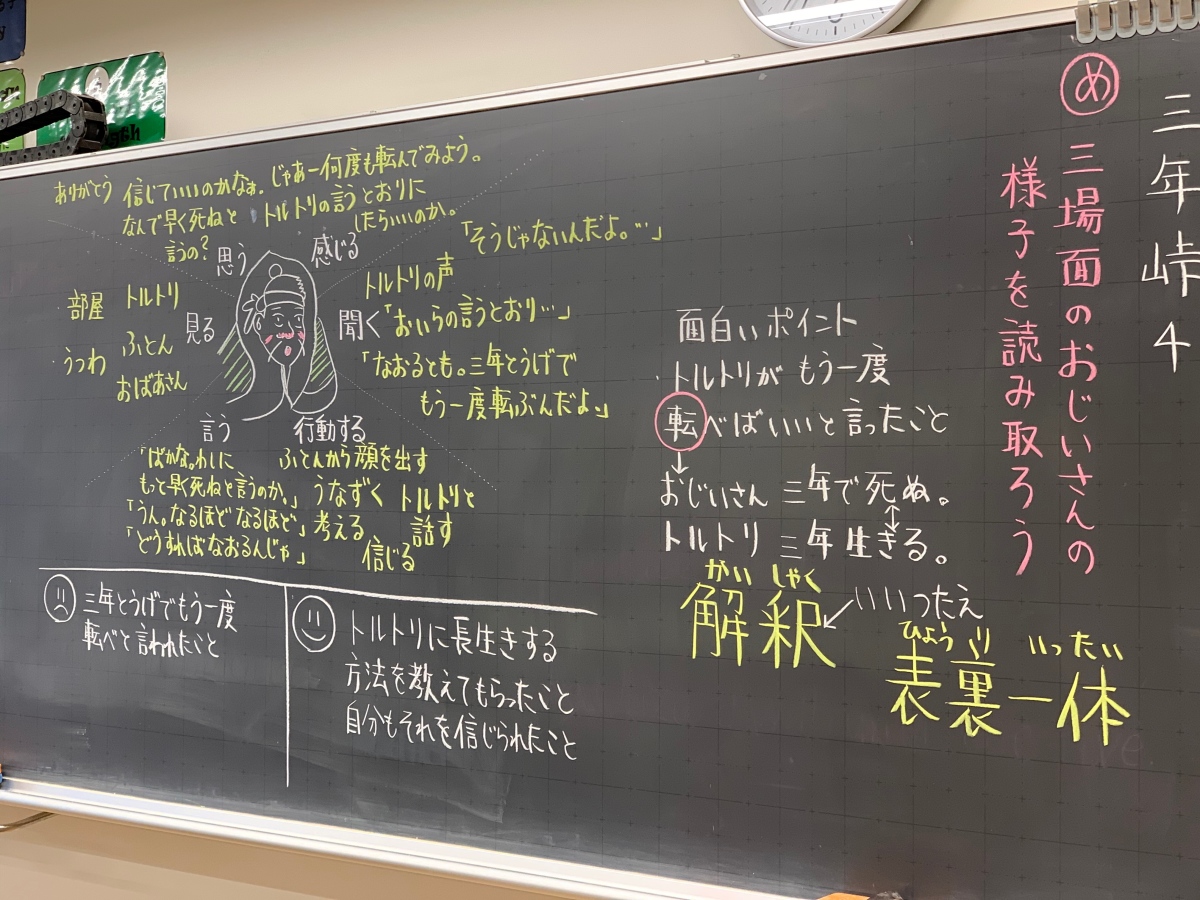 三年峠 4
め 三場面のおじいさんの
様子を読み取ろう
面白いポイント
・トルトリが もう一度
転べばいいと言ったこと
おじいさん 三年で死ぬ。
トルトリ 三年生きる。
かい しゃく
解釈
いいつたえ
ひょう り いったい
表裏一体
ありがとう
信じていいのかなぁ。じゃあ一何度も転んでみよう。
なんで早く死ねと
言うの?
トルトリの言うとおりに
したらいいのか。
思う
感じる
「そうじゃないんだよ。…」
トルトリの声
聞く「おいらの言うとおり…」
「なおるとも。三年とうげで
もう一度転ぶんだよ。」
見る
・部屋 トルトリ
・うつわ ふとん
おばあさん
言う
「ばかな。わしに
もっと早く死ねと言うのか。」
「うん。なるほど なるほど」
「どうすればなおるんじゃ」
行動する
ふとんから顔を出す
うなずく トルトリと
考える 話す
信じる
三年とうげでもう一度
転べと言われたこと
トルトリに長生きする
方法を教えてもらったこと
自分もそれを信じられたこと